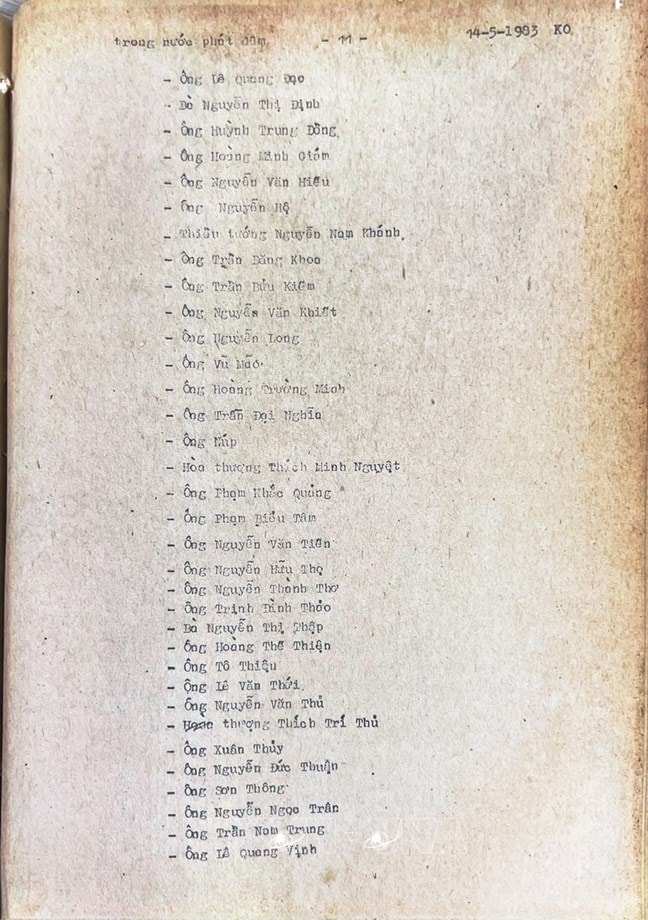 trong nước phát đêm - 11 - 14-5-1983 KO
- Ông Lê Quang Đạo
- Bà Nguyễn Thị Định
- Ông Huỳnh Trung Đồng
- Ông Hoàng Minh Giám
- Ông Nguyễn Văn Hiếu
- Ông Nguyễn Hộ
- Thiếu tướng Nguyễn Nam Khánh
- Ông Trần Đăng Khoa
- Ông Trần Bửu Kiếm
- Ông Nguyễn Văn Khiết
- Ông Nguyễn Long
- Ông Vũ Mão
- Ông Hoàng Trường Minh
- Ông Trần Đại Nghĩa
- Ông Núp
- Hòa thượng Thích Minh Nguyệt
- Ông Phạm Khắc Quảng
- Ông Phạm Biểu Tâm
- Ông Nguyễn Văn Tiến
- Ông Nguyễn Hữu Thọ
- Ông Nguyễn Thành Thơ
- Ông Trịnh Đình Thảo
- Bà Nguyễn Thị Thập
- Ông Hoàng Thế Thiện
- Ông Tô Thiệu
- Ông Lê Văn Thới
- Ông Nguyễn Văn Thủ
- Hòa thượng Thích Trí Thủ
- Ông Xuân Thủy
- Ông Nguyễn Đức Thuận
- Ông Sơn Thông
- Ông Nguyễn Ngọc Trân
- Ông Trần Nam Trung
- Ông Lê Quang Vịnh